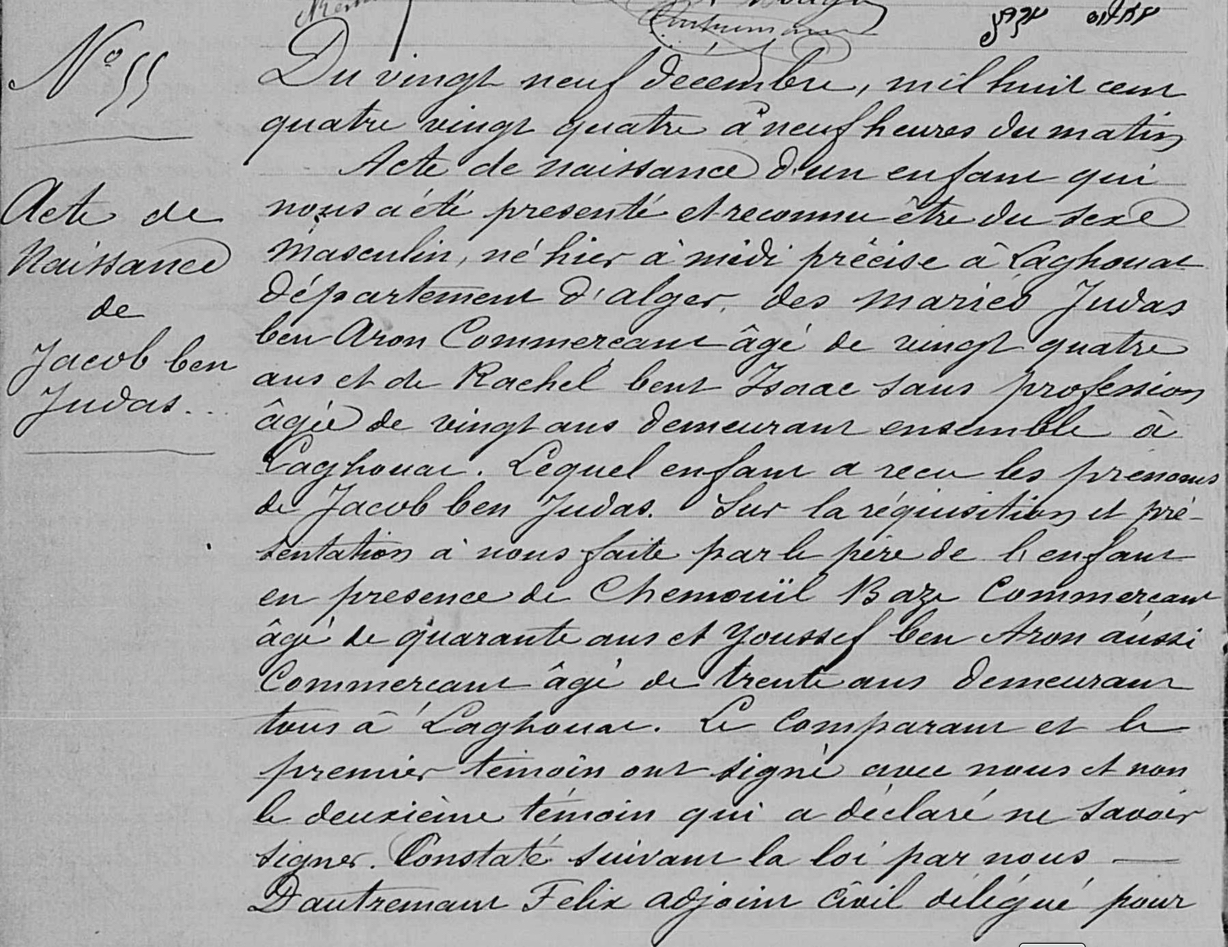 Nº 55
Acte de
Naissance
de
Jacob ben
Judas...
Du vingt neuf décembre, mil huit cent
quatre vingt quatre à neuf heures du matin
Acte de naissance d'un enfant qui
nous a été presenté et reconnu être du sexe
masculin, né hier à midi précise à Laghouat
département d'alger, des mariés Judas
ben Aron Commercant âgé de vingt quatre
ans et de Rachel bent Isaac sans profession
âgée de vingt ans demeurant ensemble à
Laghouat. Lequel enfant a recu les prénoms
de Jacob ben Judas. Sur la réquisition et pré-
sentation à nous faite par le père de l'enfant
en presence de Chemouïl Baze Commercant
âgé de quarante ans et Youssef ben Aron aussi
Commercant âgé de trente ans demeurant
tous à Laghouat. Le Comparant et le
premier témoin ont signé avec nous et non
le deuxième témoin qui a déclaré ne savoir
signer. Constaté suivant la loi par nous —
Dautremant Felix adjoint civil délégué pour